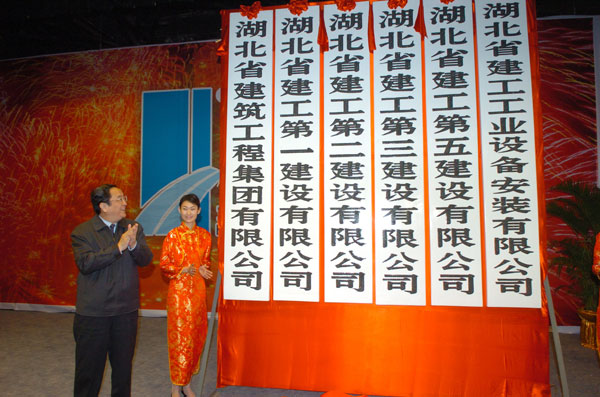 湖北省建筑工程集团有限公司
湖北省建工第一建设有限公司
湖北省建工第二建设有限公司
湖北省建工第三建设有限公司
湖北省建工第五建设有限公司
湖北省建工工业设备安装有限公司